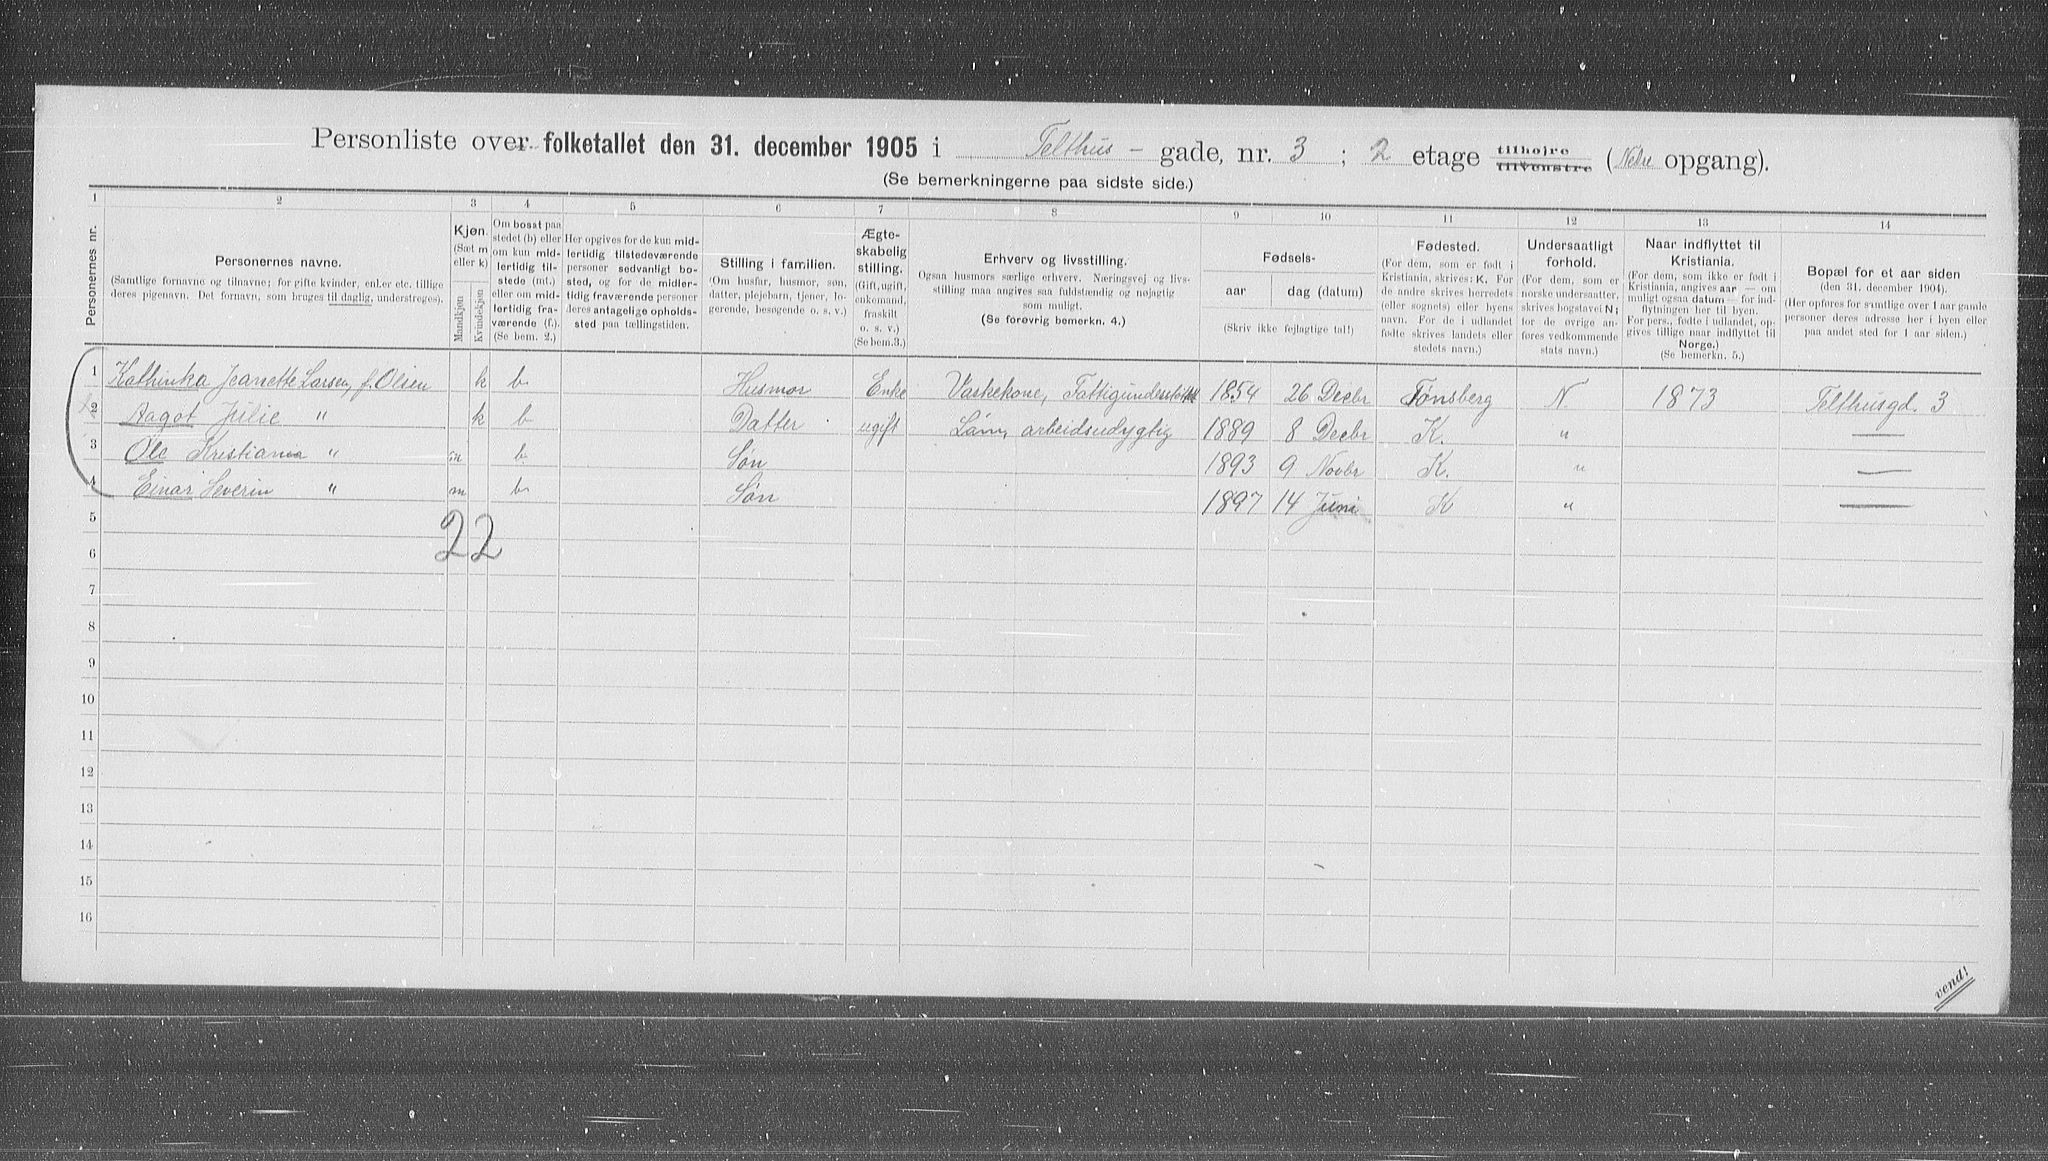 Personliste over folketallet den 31. december 1905 i Telthus - gade, nr. 3 ; 2 etage tilhøjre tilvenstre (Nedre opgang).
(Se bemerkningerne paa sidste side.)
1 2 3 4 5 6 7 8 9 10 11 12 13 14
Personernes nr.
Personernes navne.
(Samtlige fornavne og tilnavne; for gifte kvinder, enker etc. tillige
deres pigenavn. Det fornavn, som bruges til daglig, understreges).
Kjøn.
(Sæt m
eller k)
Mandkjøn
Kvindekjøn
Om bosat paa
stedet (b) eller
om kun mid-
lertidig til-
stede (mt.)
eller om mid-
lertidig fra-
værende (f.).
(Se bem. 2.)
Her opgives for de kun mid-
lertidig tilstedeværende
personer sedvanligt bo-
sted, og for de midler-
tidig fraværende personer
deres antagelige opholds-
sted paa tællingstiden.
Stilling i familien.
(Om husfar, husmor, søn,
datter, plejebarn, tjener, lo-
gerende, besøgende o. s. v.)
Ægte-
skabelig
stilling.
(Gift, ugift,
enkemand,
fraskilt
o. s. v.)
(Se bem.3.)
Erhverv og livsstilling.
Ogsaa husmors særlige erhverv. Næringsvej og livs-
stilling maa angives saa fuldstændig og nøjagtig
som muligt.
(Se forøvrig bemerkn. 4.)
Fødsels-
aar dag (datum)
(Skriv ikke fejlagtige tal!)
Fødested.
(For dem, som er født i
Kristiania, skrives: K. For
de andre skrives herredets
(eller sognets) eller byens
navn. For de i udlandet
fødte skrives landets eller
stedets navn.)
Undersaatligt
forhold.
(For dem, som er
norske undersaatter,
skrives bogstavet N;
for de øvrige an-
føres vedkommende
stats navn.)
Naar indflyttet til
Kristiania.
(For dem, som ikke er født i
Kristiania, angives aar — om
muligt ogsaa datum — for ind-
flytningen her til byen.
For pers., fødte i udlandet, op-
gives tillige naar indflyttet til
Norge.)
(Se bemerkn. 5.)
Bopæl for et aar siden
(den 31. december 1904).
(Her opføres for samtlige over 1 aar gamle
personer deres adresse her i byen eller
paa andet sted for 1 aar siden.)
1 Kathinka Jeanette Larsen, f. Olsen k b. Husmor Enke Vaskekone, Fattigunderstøttet 1854 26 Decbr Tønsberg N. 1873 Telthusgd. 3
2 Aagot Julie " k b Datter ugift Lam, arbeidsudygtig 1889 8 Decbr K. " —
3 Ole Kristian " m b. Søn 1893 9 Novbr K. " —
4 Einar Severin " m b. Søn 1897 14 Juni K " —
5
22
6
7
8
9
10
11
12
13
14
15
16
vend!